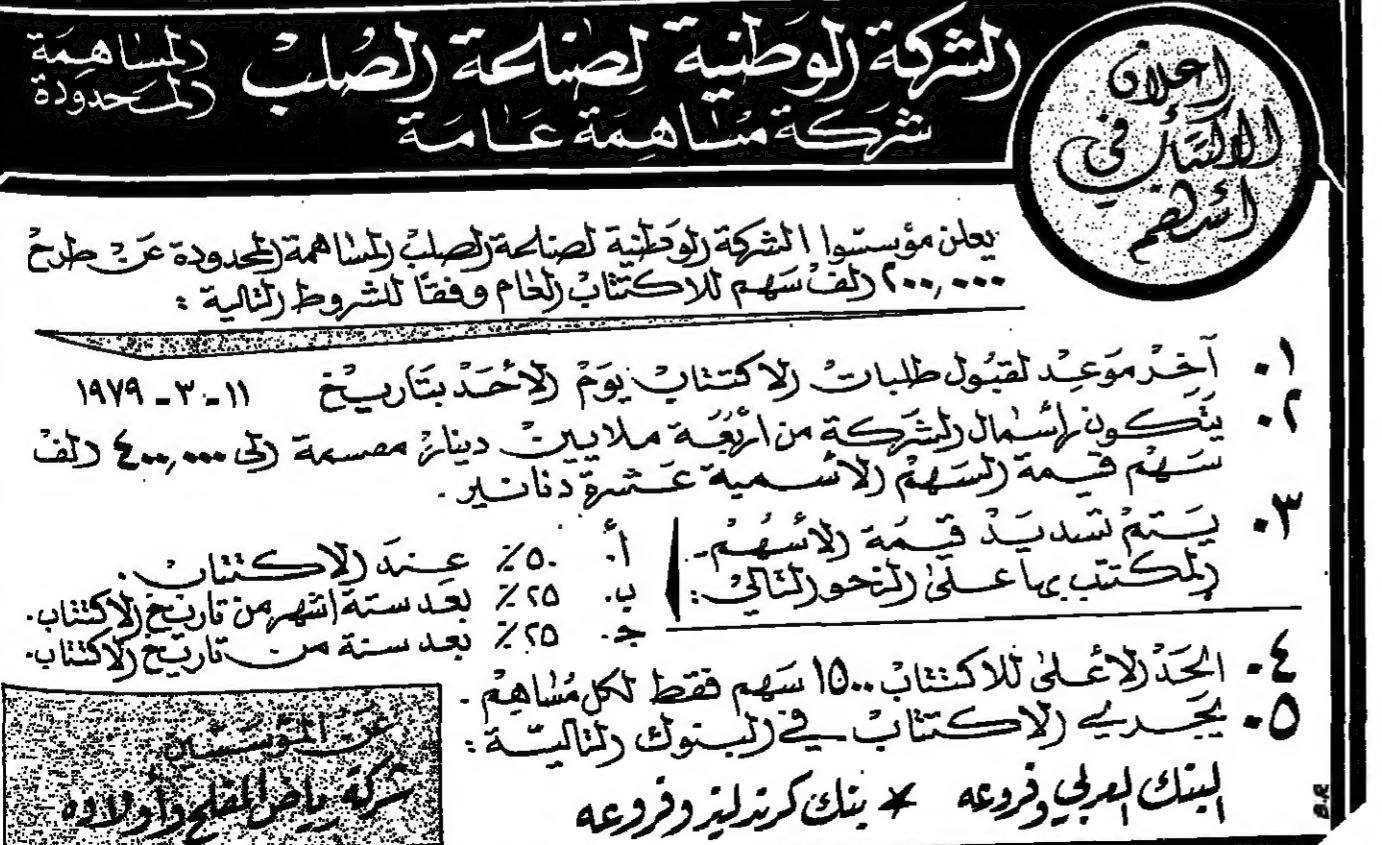 اعلان
الاكتتاب في
اسهم
الشركة الوطنية لصناعة الصلب
المساهمة
المحدودة
شركة مساهمة عامة
يعلن مؤسسوا الشركة الوطنية لصناعة الصلب المساهمة المحدودة عن طرح
٢٠٠,٠٠٠ الف سهم للاكتتاب العام وفقا للشروط التالية :
١- آخر موعد لقبول طلبات الاكتتاب يوم الأحد بتاريخ ١١-٣-١٩٧٩
٢- يتكون رأسمال الشركة من اربعة ملايين دينار مقسمة الى ٤٠٠,٠٠٠ الف
سهم قيمة السهم الاسمية عشرة دنانير .
٣- يتم تسديد قيمة الأسهم
المكتتب بها على النحو التالي :
أ. ٥٠٪ عند الاكتتاب .
ب. ٢٥٪ بعد ستة اشهر من تاريخ الاكتتاب .
ج. ٢٥٪ بعد سنة من تاريخ الاكتتاب .
٤- الحد الأعلى للاكتتاب ١٥٠٠ سهم فقط لكل مساهم .
٥- يجري الاكتتاب في البنوك التالية :
البنك العربي وفروعه * بنك كرندليز وفروعه
عن المؤسسين
شركة رياض المفلح وأولاده
B.R